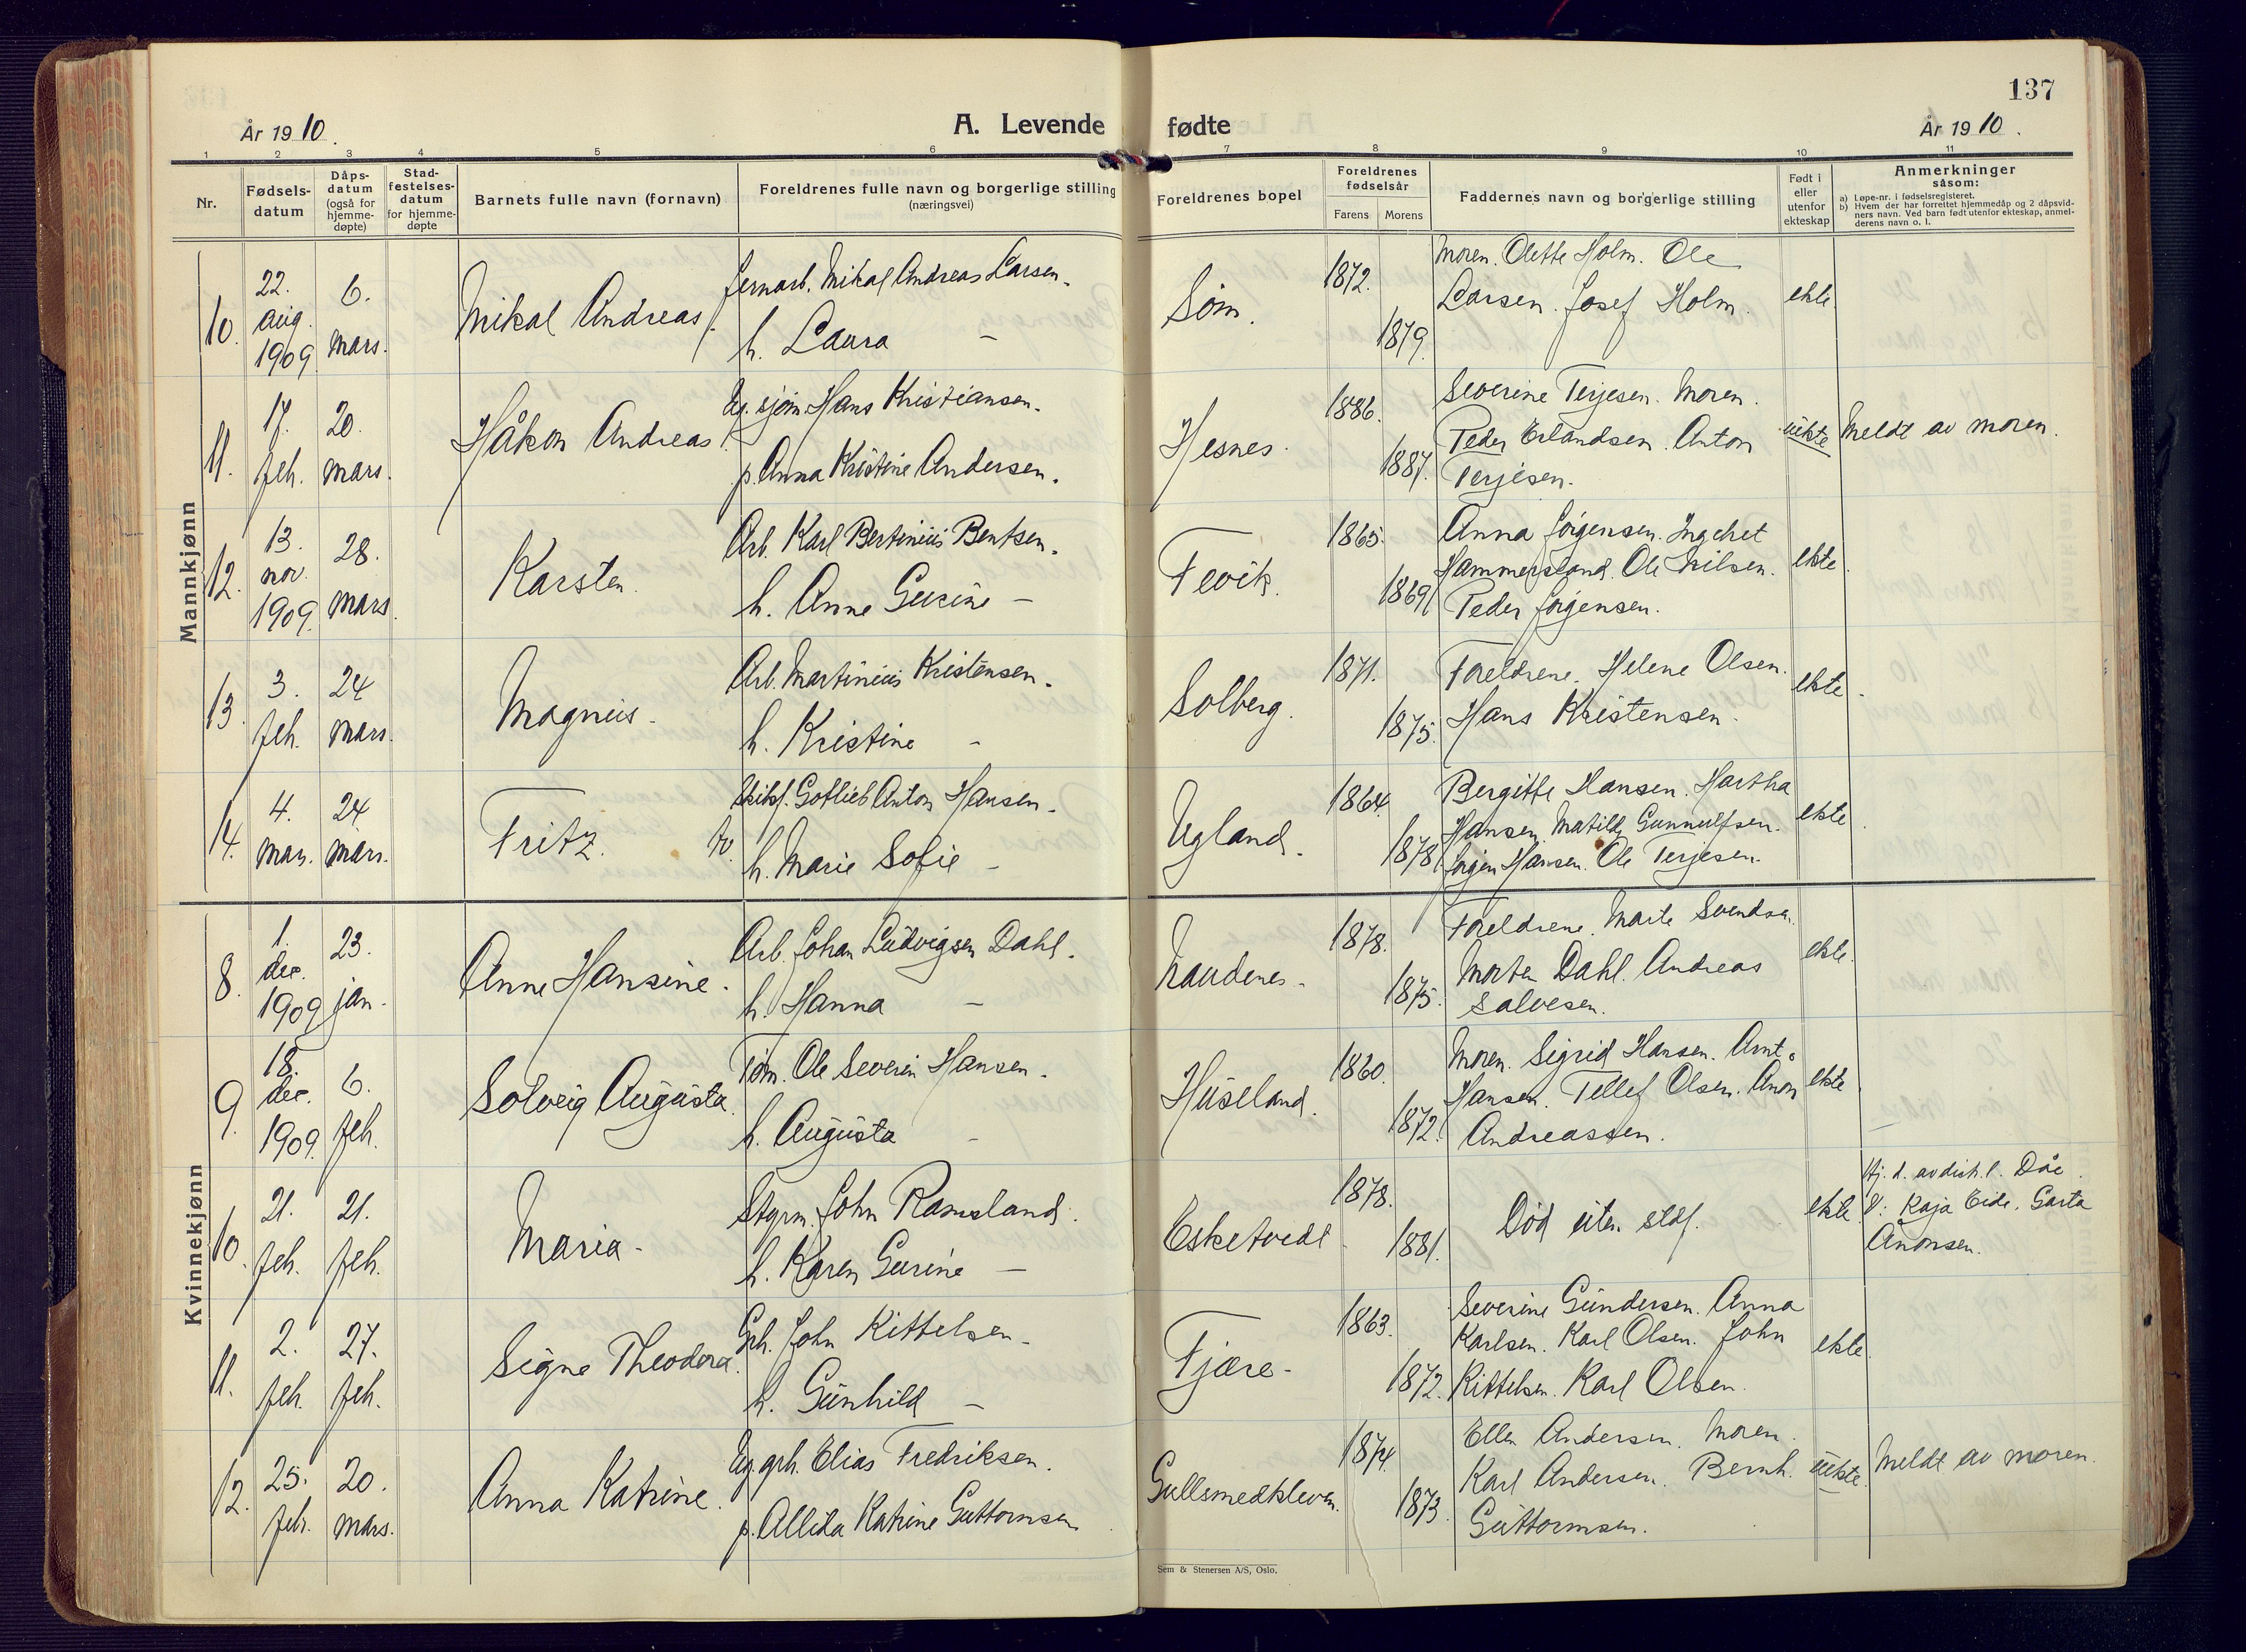 137
År 1910.
A. Levende fødte
År 1910.
1 2 3 4 5 6 7 8 9 10 11
Nr.
Fødsels-
datum
Dåps-
datum
(også for
hjemme-
døpte)
Stad-
festelses-
datum
for hjemme-
døpte
Barnets fulle navn (fornavn)
Foreldrenes fulle navn og borgerlige stilling
(næringsvei)
Foreldrenes bopel
Foreldrenes
fødselsår
Farens Morens
Faddernes navn og borgerlige stilling
Født i
eller
utenfor
ekteskap
Anmerkninger
såsom:
a) Løpe-nr. i fødselsregisteret.
b) Hvem der har forrettet hjemmedåp og 2 dåpsvid-
ners navn. Ved barn født utenfor ekteskap, anmel-
derens navn o. l.
Mannkjønn
10.
22.
aug.
1909.
6.
mars.
Mikal Andreas.
Jernarb. Mikal Andreas Larsen.
h. Laura –
Søm.
1872.
1879.
Moren. Olette Holm. Ole
Larsen. Josef Holm.
ekte.
11.
17.
feb.
20.
mars.
Håkon Andreas.
Ug. sjøm. Hans Kristiansen.
p. Anna Kristine Andersen.
Hesnes.
1886.
1887.
Severine Terjesen. Moren.
Peder Erlandsen. Anton
Terjesen.
uekte
Meldt av moren.
12.
13.
nov.
1909.
28.
mars.
Karsten.
Arb. Karl Bertinius Bentsen.
h. Anne Gurine –
Fevik.
1865.
1869.
Anna Jørgensen. Ingebret
Hammersland. Ole Nilsen.
Peder Jørgensen.
ekte.
13.
3.
feb.
24
mars.
Magnus.
Arb. Martinius Kristensen.
h. Kristine –
Solberg.
1871.
1875.
Foreldrene. Helene Olsen.
Hans Kristensen.
ekte.
14.
4.
mars.
24.
mars.
Fritz.
tv.
Gotlieb Anton Hansen.
h. Marie Sofie –
Ugland.
1864.
1878.
Bergitte Hansen. Hartha
Hansen. Matilde Gunnulfsen.
Jørgen Hansen. Ole Terjesen.
ekte.
Kvinnekjønn
8.
1.
dec.
1909
23.
jan.
Anne Hansine.
Arb. Johan Ludvigsen Dahl.
h. Hanna –
Naudenes.
1878.
1875.
Foreldrene. Marte Svendsen.
Morten Dahl. Andreas
Salvesen.
ekte.
9.
18.
dec.
1909.
6.
feb.
Solveig Augusta.
Tøm. Ole Severin Hansen.
h. Augusta –
Huseland.
1860.
1872.
Moren. Sigrid Hansen. Arnt.
Hansen. Tellef Olsen. Anon
Andreassen.
ekte.
10.
21.
feb.
21.
feb.
Maria.
Styrm. John Ramsland.
h. Karen Gurine –
Esketvedt.
1878.
1881.
Død uten stdf.
ekte.
Hj. d. av distr. l. Dåe.
V: Kaja Eide. Garta
Anonsen.
11.
2.
feb.
27.
feb.
Signe Theodora.
Grb. John Kittelsen.
h. Gunhild –
Fjære.
1863.
1872.
Severine Gundersen. Anna
Karlsen. Karl Olsen. John
Kittelsen. Karl Olsen.
ekte.
12.
25.
feb.
20.
mars.
Anna Katrine.
Ug. grb. Elias Fredriksen.
p. Allida Katrine Guttormsen.
Gullsmedkleven.
1874.
1873.
Ellen Andersen. Moren.
Karl Andersen. Bernh.
Guttormsen.
uekte.
Meldt av moren.
Sem & Stenersen A/S, Oslo.